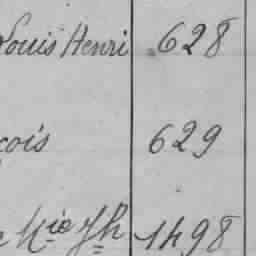 Louis Henri 628
çois 629
Mie Jh 1498